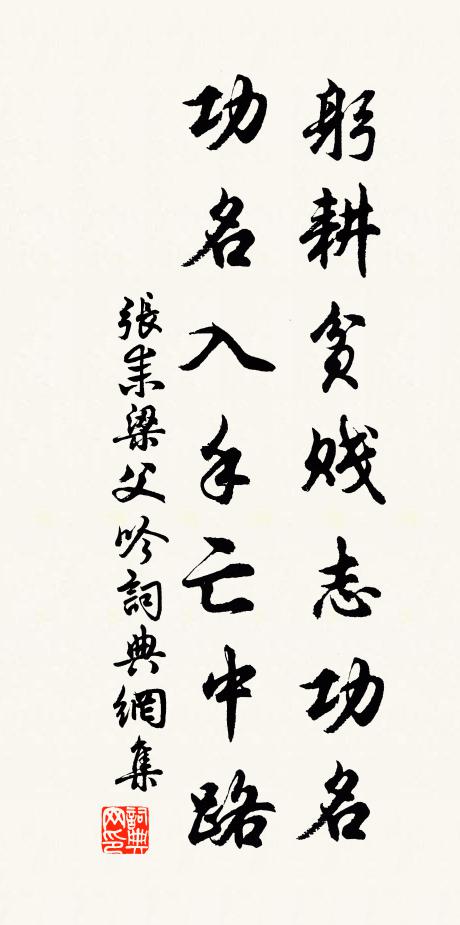 躬耕貧賤志功名
功名入手亡中路
張耒梁父吟詞典網集
詞典網印